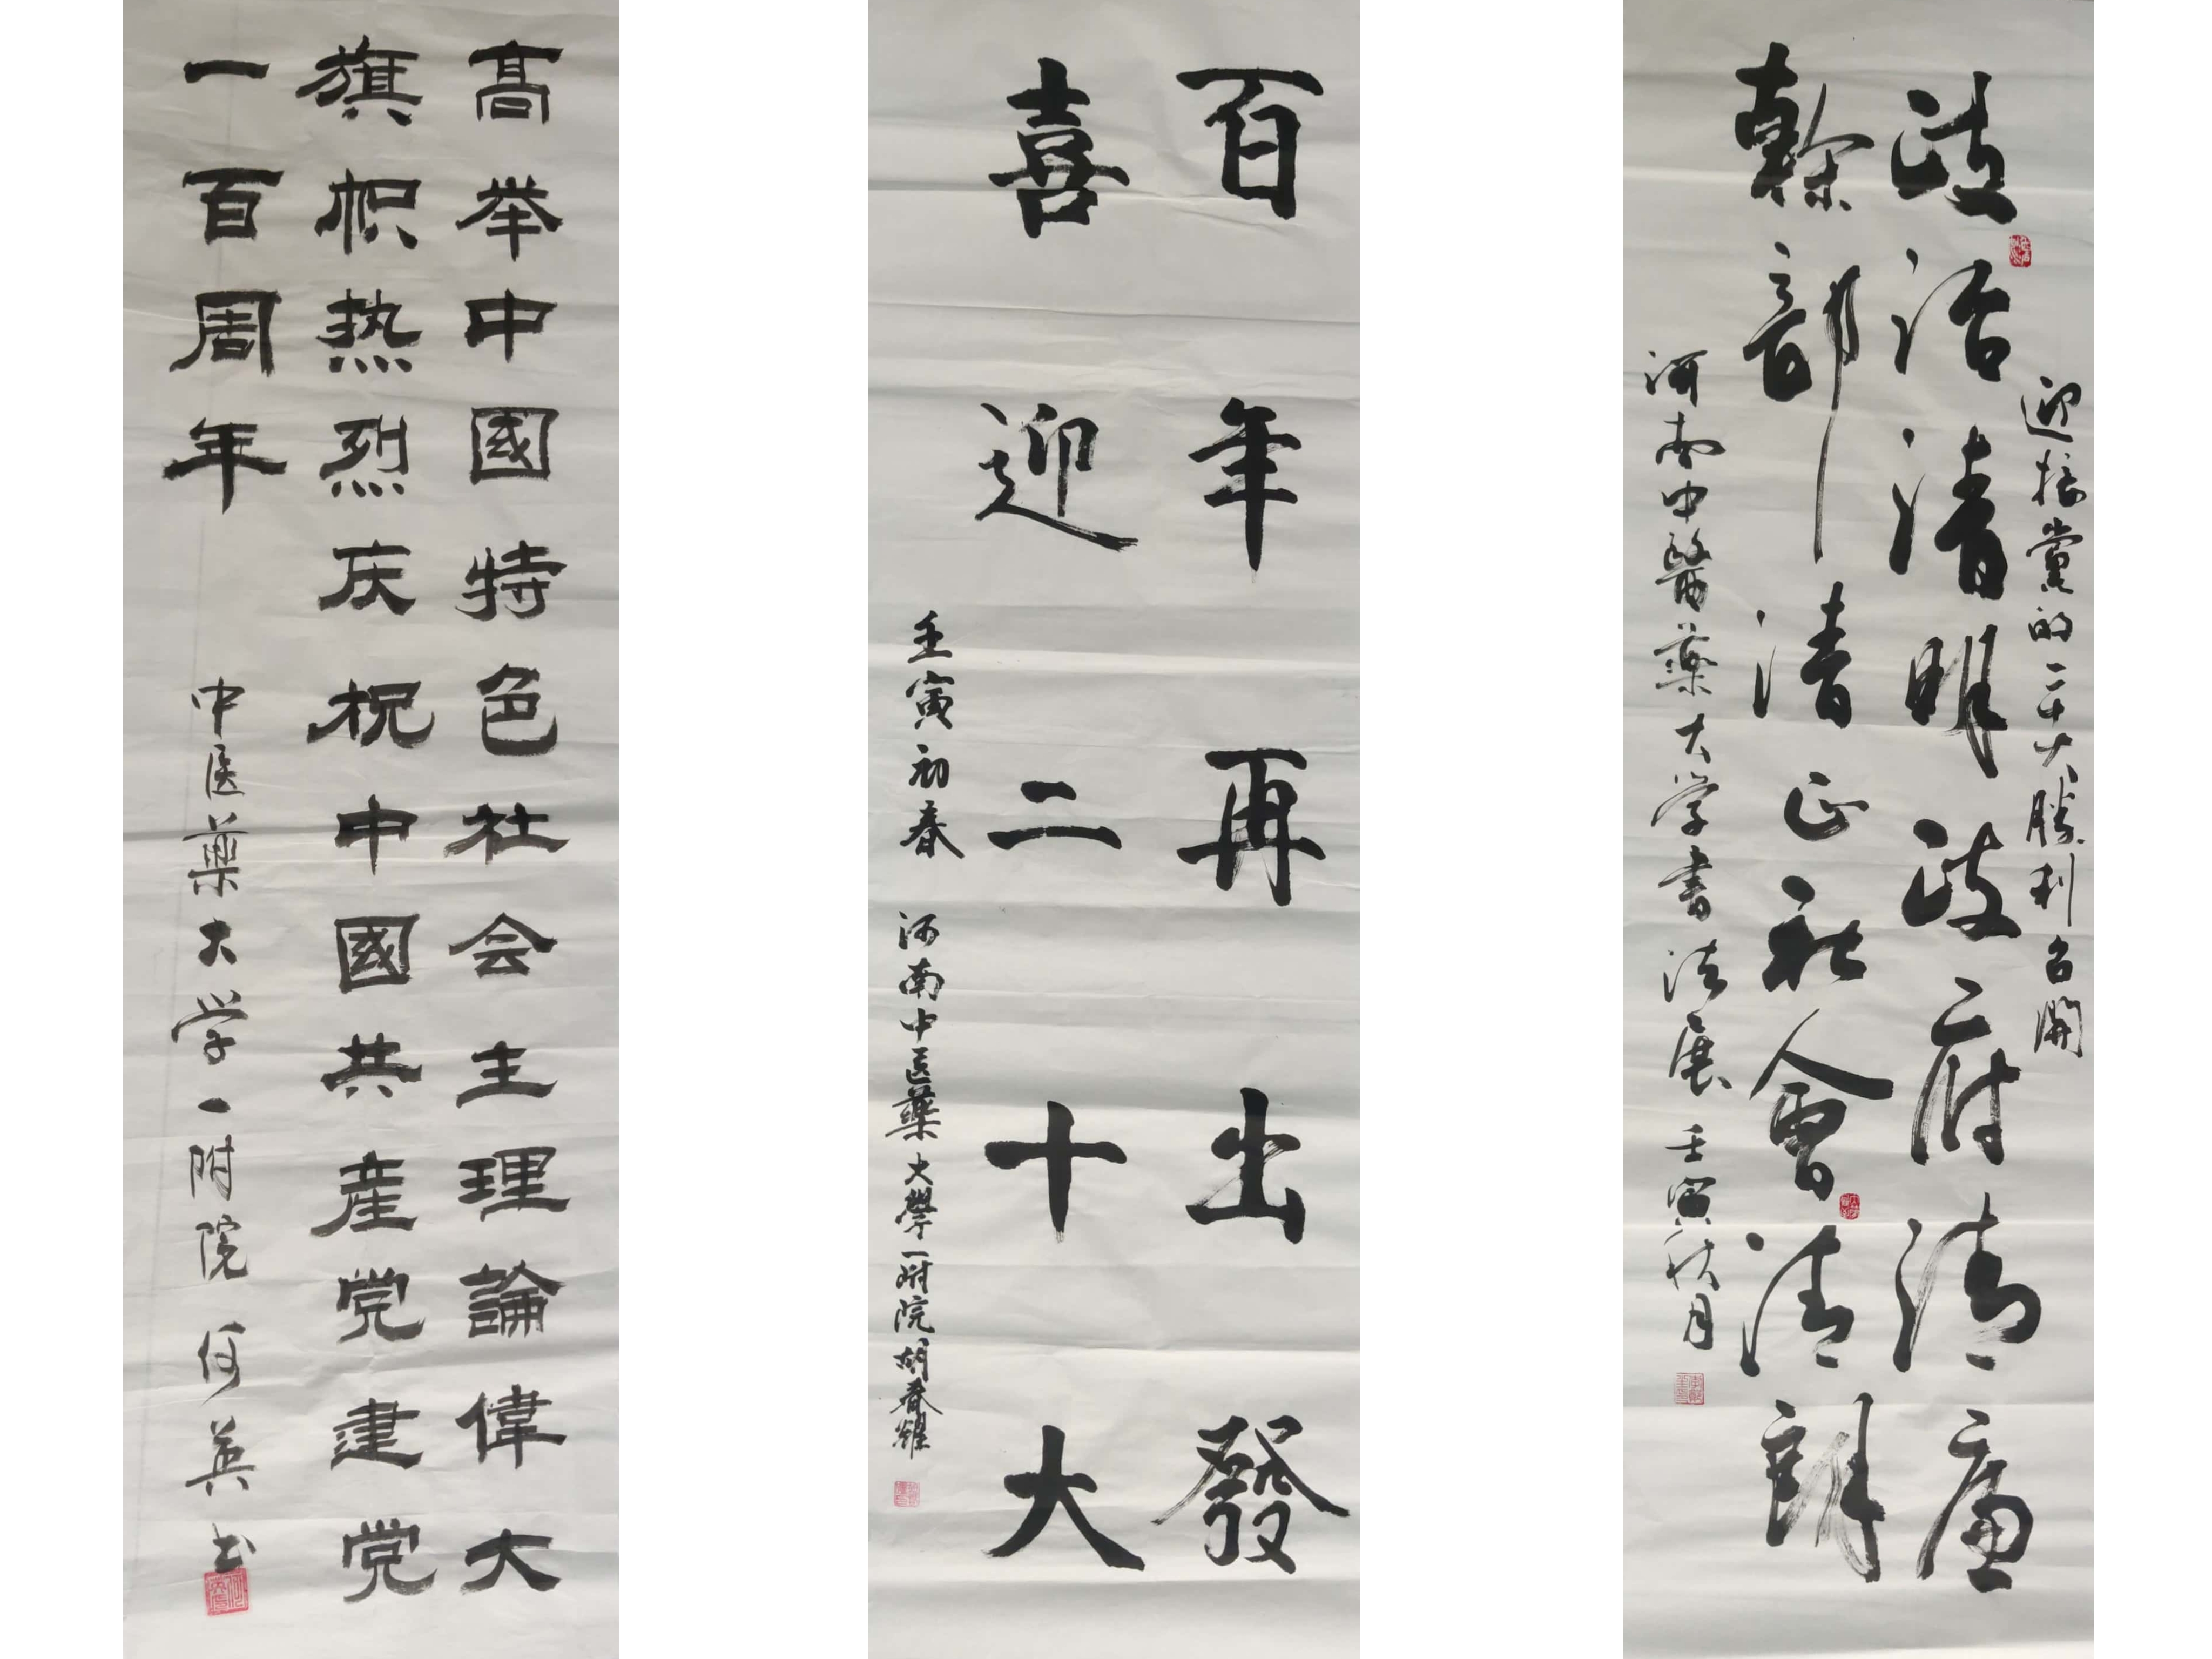 高举中國特色社会主理論偉大
旗帜热烈庆祝中國共産党建党
一百周年
中医藥大学一附院何英书
百年再出發
喜迎二十大
壬寅初春 河南中医藥大學一附院胡春耀
迎接黨的二十大勝利召開
政治清明政府清廉
幹部清正社會清朗
河南中醫藥大学書法展壬寅秋月